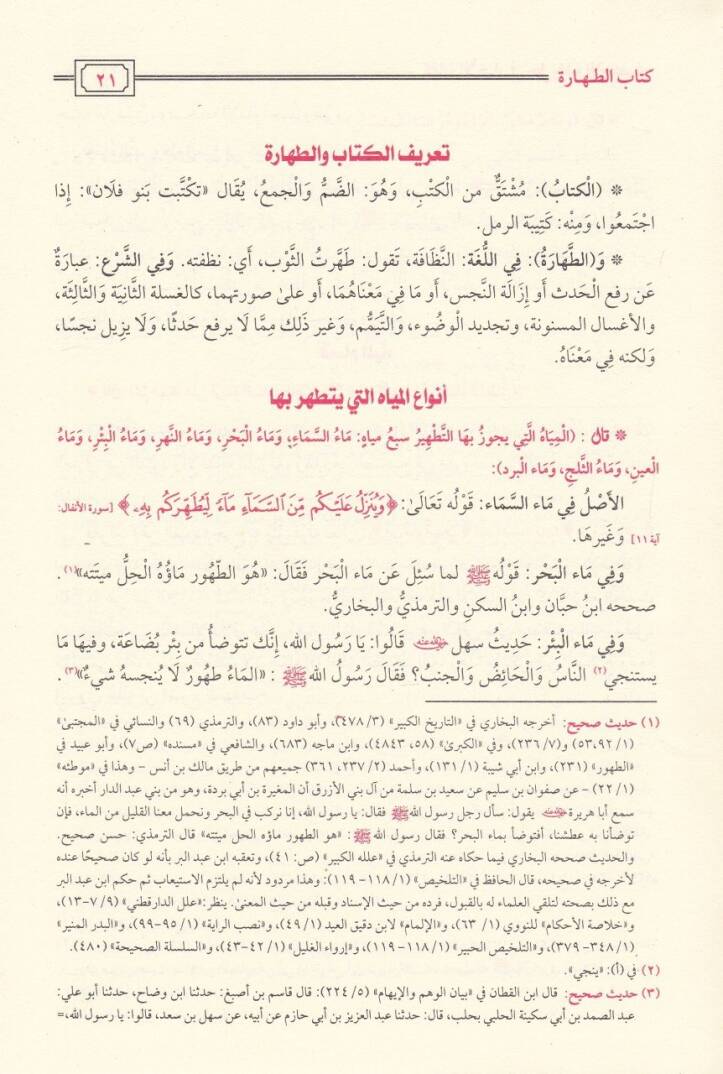 كتاب الطهارة
٢١
تعريف الكتاب والطهارة
* (الْكتابُ): مُشْتَقٌّ من الْكَتْبِ، وَهُوَ: الضَّمُّ وَالْجمعُ، يُقَال «تكتَّبت بَنو فلَان»: إذا
اجْتمعُوا، وَمِنْه: كَتِيبَة الرمل.
* وَ(الطَّهَارَةُ): فِي اللُّغَة: النَّظَافَة، تَقول: طَهَّرتُ الثَّوْب، أَي: نظفته. وَفِي الشَّرْع: عبارَةٌ
عَن رفع الْحَدث أَو إِزَالَة النَّجس، أَو مَا فِي مَعْنَاهُمَا، أَو علىٰ صورتهما، كالغسلة الثَّانِيَة وَالثَّالِثَة،
والأغسال المسنونة، وتجديد الْوضُوء، وَالتَّيَمُّم، وَغير ذَلِك مِمَّا لَا يرفع حَدثًا، وَلَا يزِيل نجسًا،
وَلكنه فِي مَعْنَاهُ.
أنواع المياه التي يتطهر بها
* قال : (الْمِيَاهُ الَّتِي يجوزُ بهَا التَّطْهِيرُ سبعُ مياهٍ: مَاءُ السَّمَاءِ، وَمَاءُ الْبَحْرِ، وَمَاءُ النَّهرِ، وَمَاءُ الْبِئْرِ، وَمَاءُ
الْعينِ، وَمَاءُ الثَّلجِ، وَمَاء الْبرد):
الأَصْلُ فِي مَاء السَّمَاء: قَوْلُه تَعَالَىٰ: ﴿وَيُنَزِّلُ عَلَيْكُم مِّنَ ٱلسَّمَآءِ مَآءً لِّيُطَهِّرَكُم بِهِۦ﴾ [سورة الأنفال:
آية ١١] وَغَيرهَا.
وَفِي مَاء الْبَحْر: قَوْلُه ﷺ لما سُئِلَ عَن مَاء الْبَحْر فَقَالَ: «هُوَ الطّهُور مَاؤُهُ الْحِلُّ ميتَته»(١) .
صححه ابنُ حبَّان وابنُ السكنِ والترمذيُّ والبخاريُّ.
وَفِي مَاء الْبِئْر: حَدِيثُ سهل رضي الله عنه قَالُوا: يَا رَسُول الله، إِنَّك تتوضأُ من بِئْر بُضَاعَة، وفيهَا مَا
يستنجي(٢) النَّاسُ وَالْحَائِضُ وَالْجنبُ؟ فَقَالَ رَسُولُ الله ﷺ : «المَاءُ طهُورٌ لَا يُنجسهُ شيءٌ»(٣) .
(١) حديث صحيح: أخرجه البخاري في «التاريخ الكبير» (٣/ ٤٧٨)، وأبو داود (٨٣)، والترمذي (٦٩) والنسائي في «المجتبىٰ»
(١/ ٥٣،٩٢) و(٧/ ٢٣٦)، وفي «الكبرىٰ» (٥٨، ٤٨٤٣)، وابن ماجه (٦٨٣)، والشافعي في «مسنده» (ص٧)، وأبو عبيد في
«الطهور» (٢٣١)، وابن أبي شيبة (١/ ١٣١)، وأحمد (٢/ ٢٣٧، ٣٦١) جميعهم من طريق مالك بن أنس - وهذا في «موطئه»
(١/ ٢٢) - عن صفوان بن سليم عن سعيد بن سلمة من آل بني الأزرق أن المغيرة بن أبي بردة، وهو من بني عبد الدار أخبره أنه
سمع أبا هريرة رضي الله عنه يقول: سأل رجل رسول الله ﷺ فقال: يا رسول الله، إنا نركب في البحر ونحمل معنا القليل من الماء، فإن
توضأنا به عطشنا، أفتوضأ بماء البحر؟ فقال رسول الله ﷺ: «هو الطهور ماؤه الحل ميتته» قال الترمذي: حسن صحيح.
والحديث صححه البخاري فيما حكاه عنه الترمذي في «علله الكبير» (ص: ٤١)، وتعقبه ابن عبد البر بأنه لو كان صحيحًا عنده
لأخرجه في صحيحه، قال الحافظ في «التلخيص» (١/ ١١٨- ١١٩): وهذا مردود لأنه لم يلتزم الاستيعاب ثم حكم ابن عبد البر
مع ذلك بصحته لتلقي العلماء له بالقبول، فرده من حيث الإسناد وقبله من حيث المعنىٰ. ينظر: «علل الدارقطني» (٩/ ٧-١٣)،
و«خلاصة الأحكام» للنووي (١/ ٦٣)، و«الإلمام» لابن دقيق العيد (١/ ٤٩)، و«نصب الراية» (١/ ٩٥-٩٩)، و«البدر المنير»
(١/ ٣٤٨- ٣٧٩)، و«التلخيص الحبير» (١/ ١١٨- ١١٩)، و«إرواء الغليل» (١/ ٤٢-٤٣)، و«السلسلة الصحيحة» (٤٨٠).
(٢) في (أ): «ينجي».
(٣) حديث صحيح: قال ابن القطان في «بيان الوهم والإيهام» (٥/ ٢٢٤): قال قاسم بن أصبغ: حدثنا ابن وضاح، حدثنا أبو علي:
عبد الصمد بن أبي سكينة الحلبي بحلب، قال: حدثنا عبد العزيز بن أبي حازم عن أبيه، عن سهل بن سعد، قالوا: يا رسول الله،=